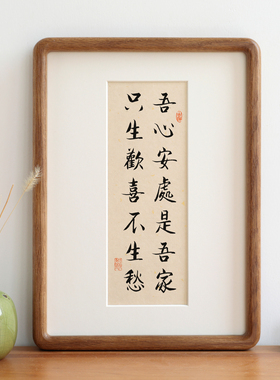 吾心安處是吾家
只生歡喜不生愁